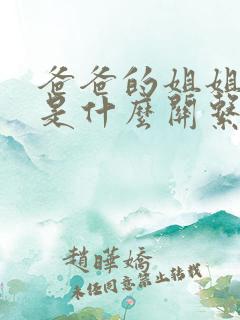 爸爸的姐姐
是什麼關繫
趙曄嬌
未经同意禁止转载